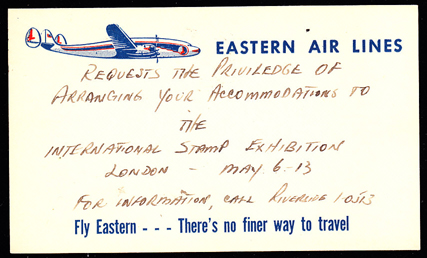 EASTERN AIR LINES
REQUESTS THE PRIVILEDGE OF
ARRANGING YOUR ACCOMMODATIONS TO
THE
INTERNATIONAL STAMP EXHIBITION
LONDON - MAY 6-13
FOR INFORMATION, CALL RIVERSIDE 1 0513
Fly Eastern - - - There's no finer way to travel